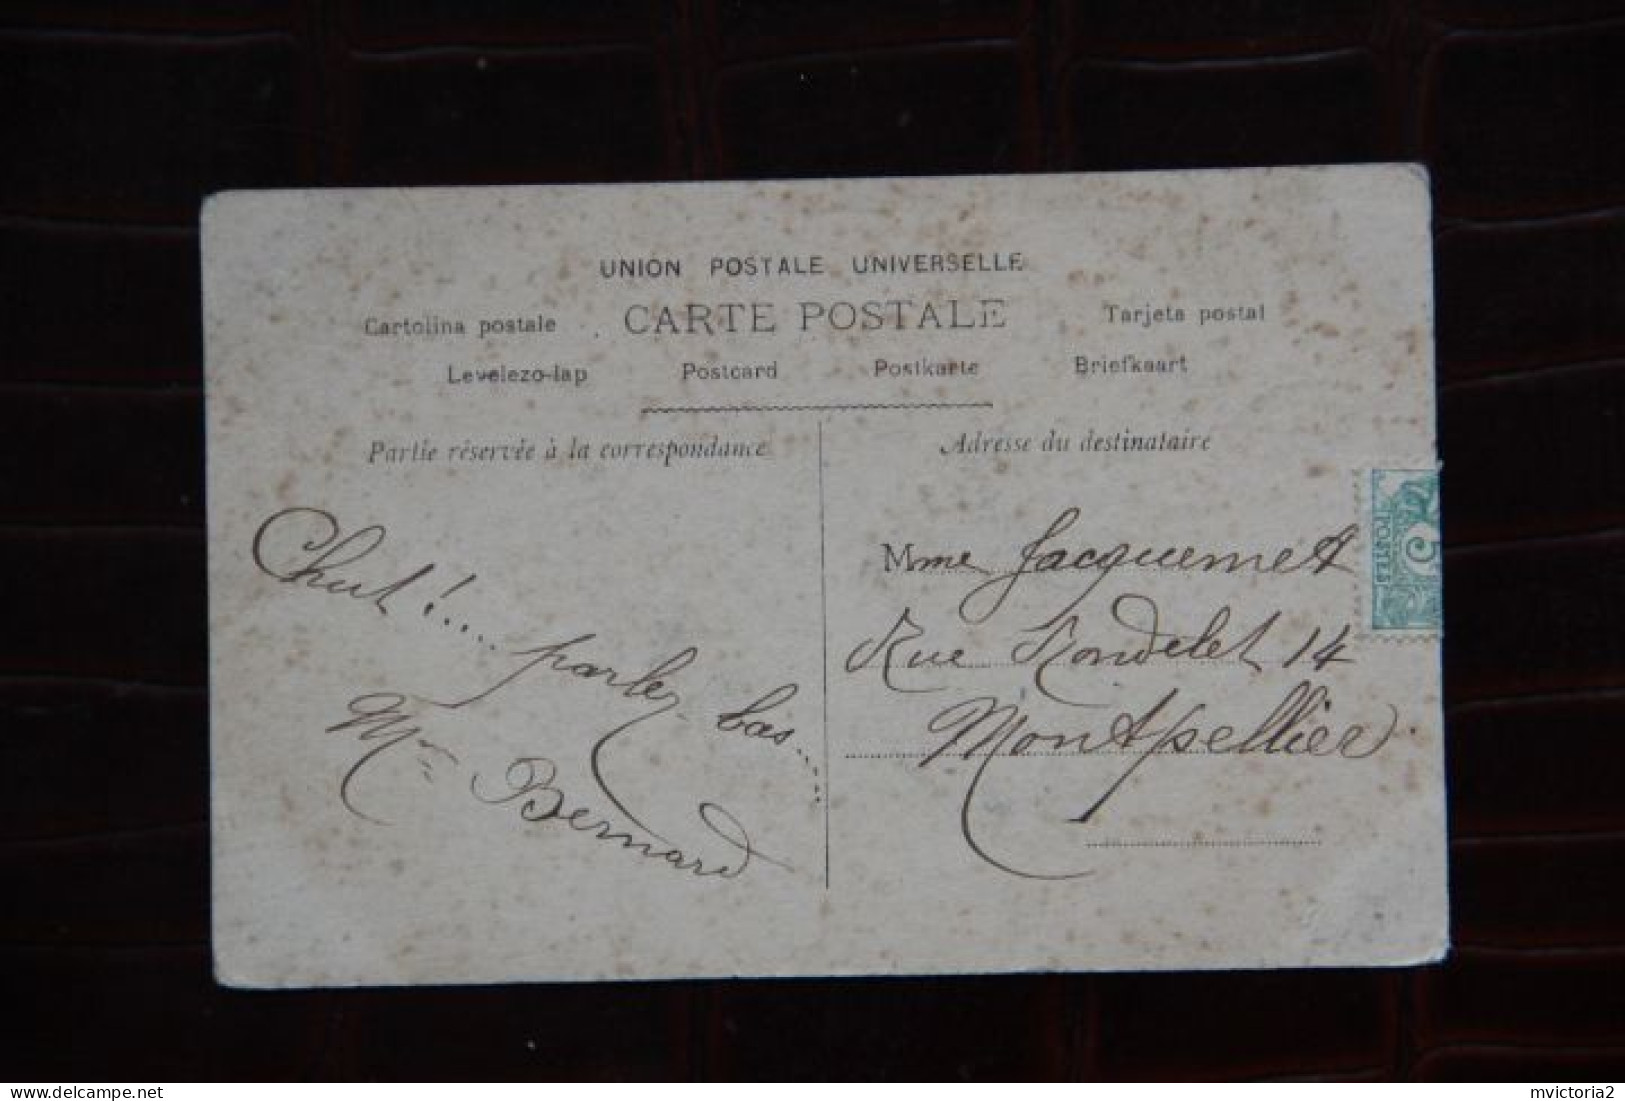 UNION POSTALE UNIVERSELLE
Cartolina postale CARTE POSTALE Tarjeta postal
Levelezo-lap Postcard Postkarte Briefkaart
Partie réservée à la correspondance
Chut!.... parlez bas.....
Mme Bernard
Adresse du destinataire
Mme Jacquemet
Rue Rondelet 14
Montpellier
5
POSTES
mvictoria2